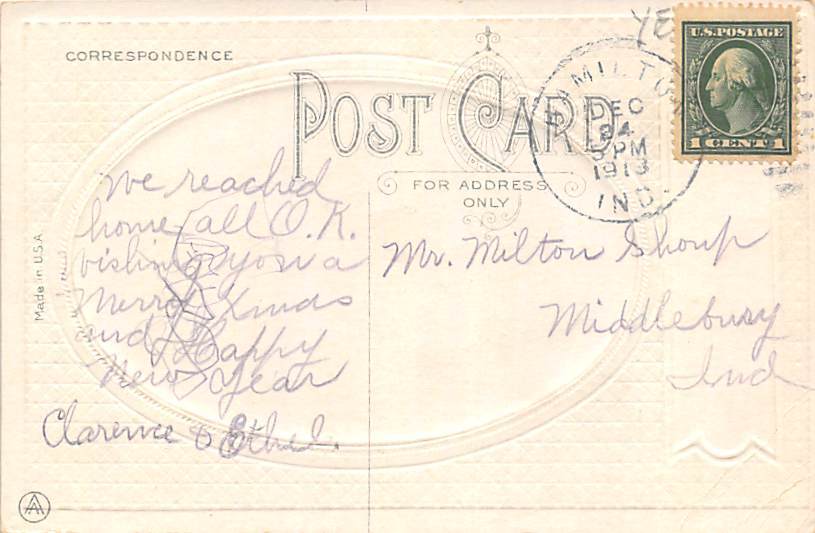 CORRESPONDENCE
POST CARD
FOR ADDRESS
ONLY
HAMILTON
DEC
24
3 PM
1913
IND.
U.S. POSTAGE
1 CENT 1
Made in U.S.A
We reached
home all O.K.
wishing you a
Merry Xmas
and Happy
New Year
Clarence & Ethel.
Mr. Milton Shoup
Middlebury
Ind